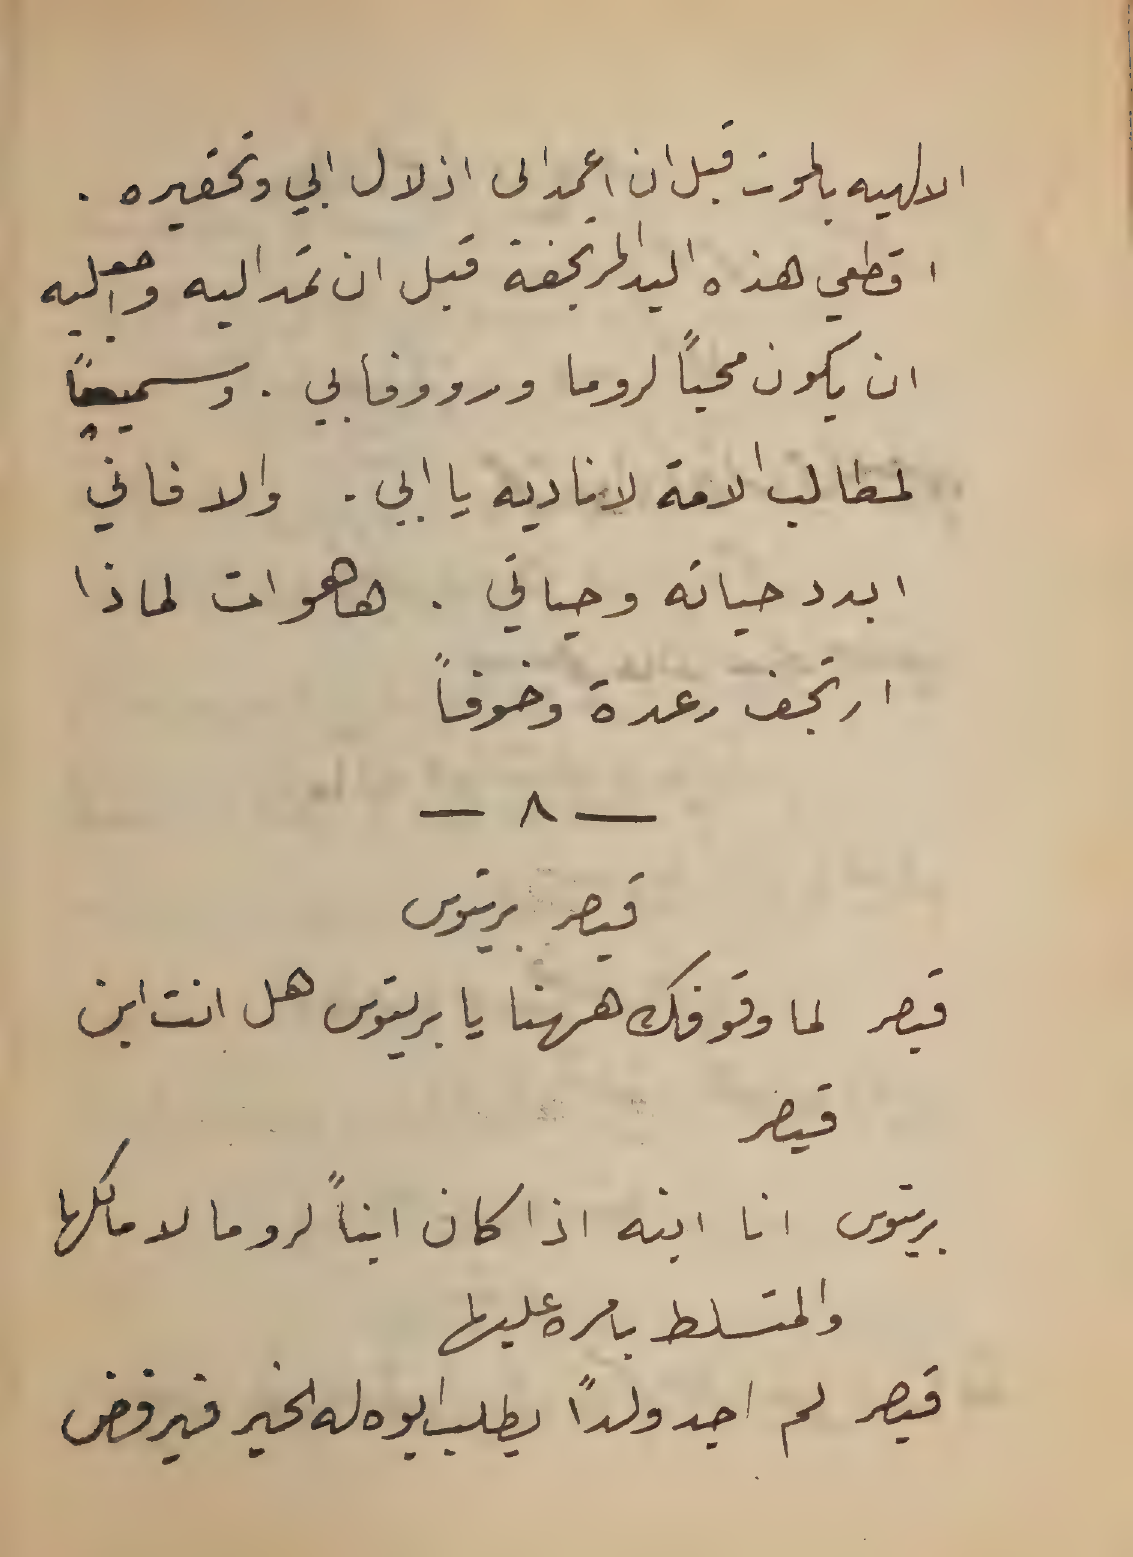 الالهيه بالموت قبل ان اعمد الى اذلال ابي وتحقيره .
اقطعي هذه اليد المرتجفة قبل ان تمد اليه واجعليه
ان يكون محباً لروما وروؤفا بي . وسميعاً
لمطالب الامة لاناديه يا ابي . والا فاني
ابدد حياته وحياتي . ها هو ات لماذا
ارتجف رعدة وخوفاً
— ٨ —
قيصر بريتوس
قيصر لما وقوفك ههنا يا بريتوس هل انت ابن
قيصر
بريتوس انا ابنه اذا كان ابناً لروما لا مالكها
والمتسلط بامره عليها
قيصر لم اجد ولداً يطلب ابوه له الخير فيرفض